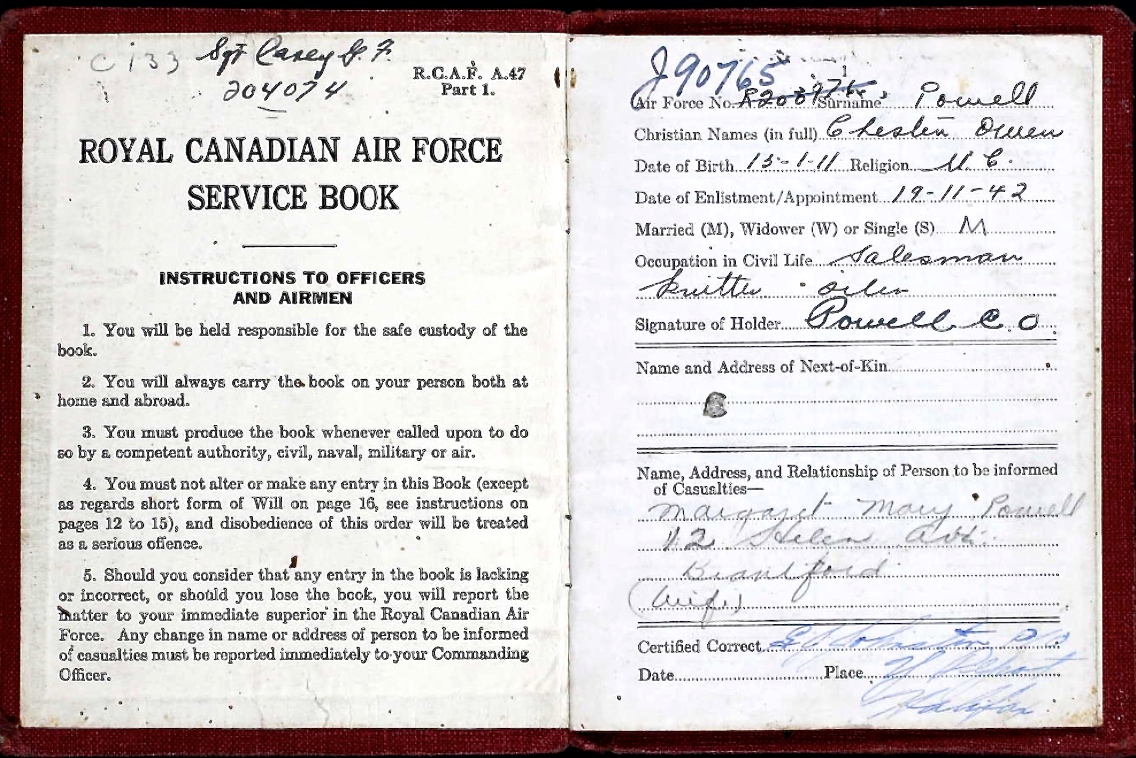 C 133 Sgt Casey G. F.
204074
R.C.A.F. A.47
Part 1.
ROYAL CANADIAN AIR FORCE
SERVICE BOOK
INSTRUCTIONS TO OFFICERS
AND AIRMEN
1. You will be held responsible for the safe custody of the
book.
2. You will always carry the book on your person both at
home and abroad.
3. You must produce the book whenever called upon to do
so by a competent authority, civil, naval, military or air.
4. You must not alter or make any entry in this Book (except
as regards short form of Will on page 16, see instructions on
pages 12 to 15), and disobedience of this order will be treated
as a serious offence.
5. Should you consider that any entry in the book is lacking
or incorrect, or should you lose the book, you will report the
matter to your immediate superior in the Royal Canadian Air
Force. Any change in name or address of person to be informed
of casualties must be reported immediately to your Commanding
Officer.
1
J90765
Air Force No. Surname Powell
Christian Names (in full) Chester Owen
Date of Birth 13-1-11 Religion U.C.
Date of Enlistment/Appointment 19-11-42
Married (M), Widower (W) or Single (S) M
Occupation in Civil Life Salesman
knitter
Signature of Holder Powell C O.
Name and Address of Next-of-Kin
Name, Address, and Relationship of Person to be informed
of Casualties—
Margaret Mary Powell
12 Helen Ave.
Brantford
(wife)
Certified Correct
Date Place
Halifax